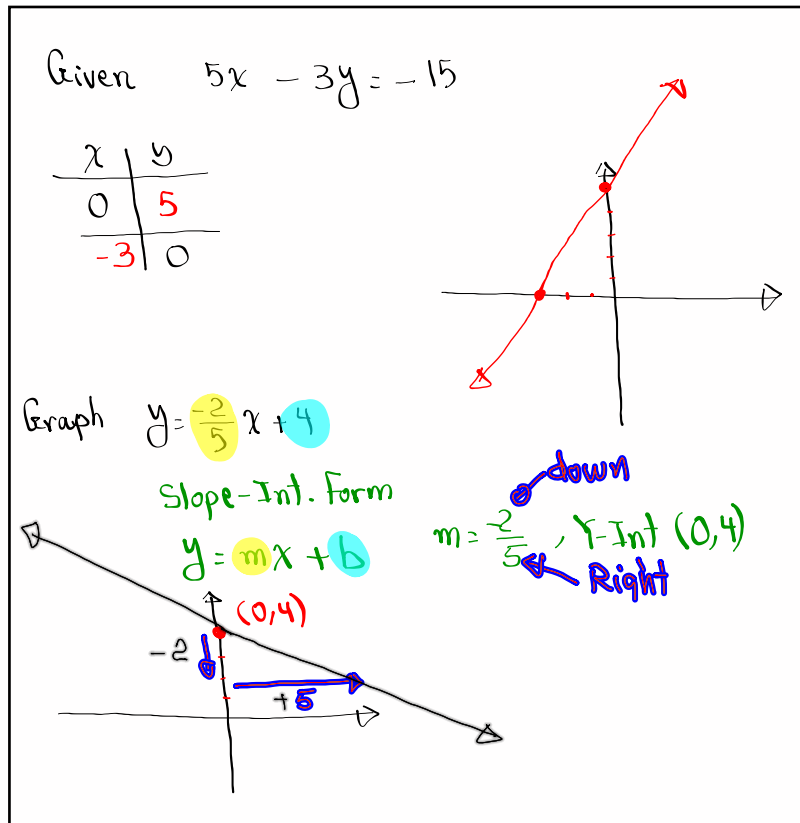 Given 5x - 3y = -15
x y
0 5
-3 0
Graph y = -2/5 x + 4
Slope-Int. Form
y = mx + b
down
m = -2/5, Y-Int (0,4)
Right
(0,4)
-2
+5